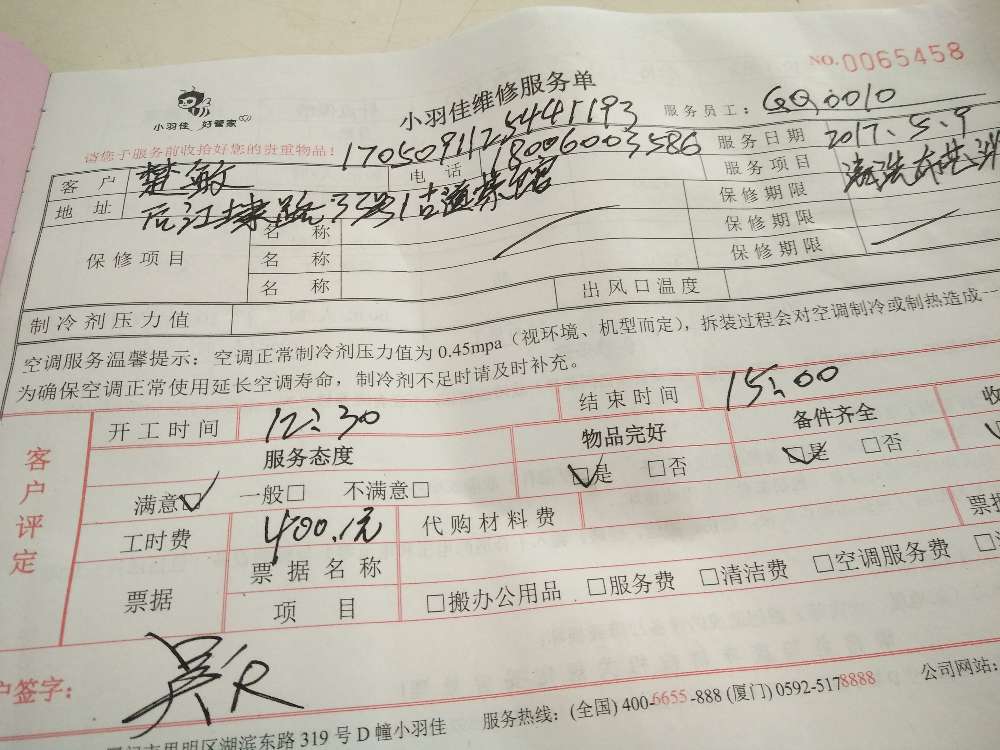 NO.0065458
小羽佳 好管家
小羽佳维修服务单
服务员工： GQ0010
请您于服务前收拾好您的贵重物品！ 17050911234441193 服务日期 2017.5.9
客户 楚敏 电话 18006003586 服务项目 清洗布艺沙
地址 路 32号 古道茶 保修期限
保修项目 名称 保修期限
名称 保修期限
名称 出风口温度
制冷剂压力值
空调服务温馨提示：空调正常制冷剂压力值为 0.45mpa（视环境、机型而定），拆装过程会对空调制冷或制热造成一
为确保空调正常使用延长空调寿命，制冷剂不足时请及时补充。
客户评定
开工时间 12:30 结束时间 15:00
服务态度 物品完好 备件齐全 收
满意☑ 一般□ 不满意□ ☑是 □否 ☑是 □否
工时费 400.元 代购材料费 票据
票据 票据名称 □搬办公用品 □服务费 □清洁费 □空调服务费
项目
户签字：
门市思明区湖滨东路 319 号 D 幢小羽佳 服务热线：(全国) 400-6655-888 (厦门) 0592-5178888 公司网站：